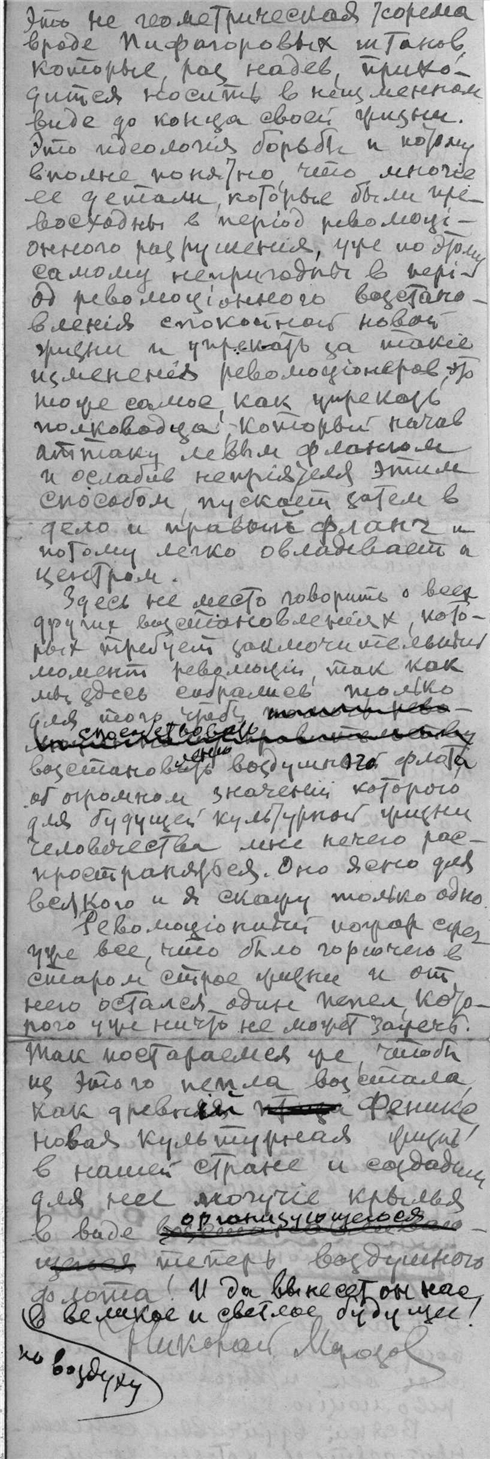 Это не геометрическая теорема
вроде Пифагоровых штанов,
которые, раз надев, прихо-
дится носить в неизменном
виде до конца своей жизни.
Это идеология борьбы и потому
вполне понятно, что многие
ее детали, которые были пре-
восходны в период революці-
онного разрушения, уже по этому
самому непригодны в пері-
од революціонного возстано-
вленія спокойной новой
жизни и упрекать за такіе
измененія революціонеров, это
тоже самое, как упрекать
полководца, который начав
аттаку левым флангом
и ослабив непріятеля этим
способом, пускает затем в
дело и правый фланг и
потому легко овладевает и
центром.
Здесь не место говорить о всех
других возстановленіях, кото-
рых требует заключительный
момент революціи, так как
мы здесь собрались только
для того чтобы
способствовать
возстановленію воздушного флота
об огромном значеніи которого
для будущей культурной жизни
человечества мне нечего рас-
пространяться. Оно ясно для
всякого и я скажу только одно.
Революціонный пожар сжег
уже все, что было горючего в
старом строе жизни и от
него остался один пепел, кото-
рого уже ничто не может зажечь.
Так постараемся же, чтобы
из этого пепла возстала,
как древній птица Феникс,
новая культурная жизнь
в нашей стране и создадим
для нее могучіе крылья
в виде организующегося
щегося теперь воздушного
флота! И да вынесет он нас
по воздуху
в великое и светлое будущее!
Николай Морозов